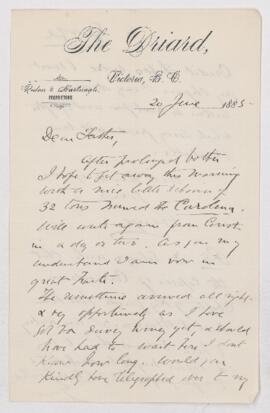 The Driard,
Victoria, B. C.
PROPRIETORS
20 June 1885
Dear Father,
After prolonged bother
I hope to get away this morning
with a nice little schooner of
32 tons named the Carolena.
Will write again from
in a day or two. as you may
understand I am now in
great haste.
The remittance arrived all right
& very opportunely as I have
not Survey money yet, & should
have had to wait here I don't
know how long. Would you
kindly have telegraphed over to my